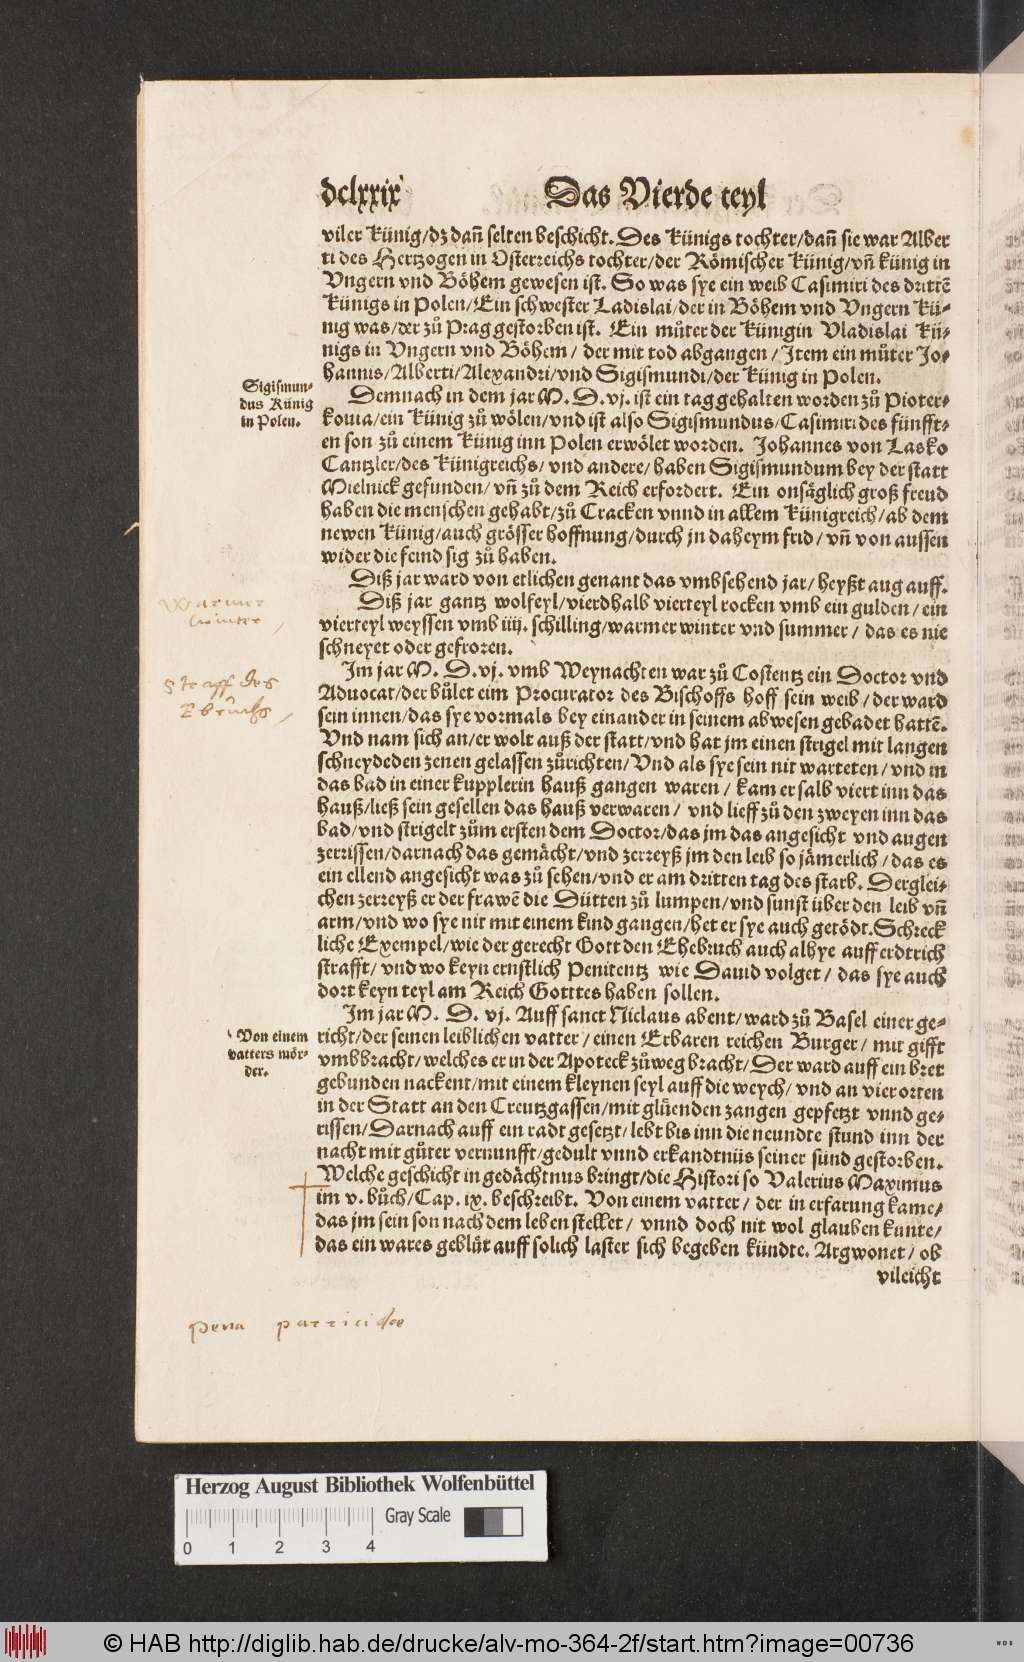 dclxxix
Das Vierde teyl
viler Künig/dz dañ selten beschicht. Des Künigs tochter/dañ sie war Alber
ti des Hertzogen in Osterreichs tochter/der Römischer Künig/vñ künig in
Vngern vnd Böhem gewesen ist. So was sye ein weib Casimiri des drittẽ
Künigs in Polen/Ein schwester Ladislai/der in Böhem vnd Vngern Kü-
nig was/der zů Prag gestorben ist. Ein můter der Künigin Vladislai Kü-
nigs in Vngern vnd Böhem/ der mit tod abgangen/Item ein můter Jo-
hannis/Alberti/Alexandri/vnd Sigismundi/der Künig in Polen.
Sigismun-
dus Künig
in Polen.
Demnach in dem jar M. D. vj. ist ein tag gehalten worden zů Pioter-
kouia/ein Künig zů wölen/vnd ist also Sigismundus/Casimiri des fünfft-
en son zů einem Künig inn Polen erwölet worden. Johannes von Lasko
Cantzler/des Künigreichs/ vnd andere/ haben Sigismundum bey der statt
Mielnick gefunden/ vñ zů dem Reich erfordert. Ein onsäglich groß freud
haben die menschen gehabt/zů Cracken vnnd in allem Künigreich/ab dem
newen Künig/auch grösser hoffnung/durch jn daheym frid/ vñ von aussen
wider die feind sig zů haben.
Diß jar ward von etlichen genant das vmbsehend jar/ heyßt aug auff.
Warmer
winter
Diß jar gantz wolfeyl/vierdhalb vierteyl rocken vmb ein gulden/ ein
vierteyl weyssen vmb iiij. schilling/warmer winter vnd summer/ das es nie
schneyet oder gefroren.
Straff des
Ebruchs
Im jar M. D. vj. vmb Weynachten war zů Costentz ein Doctor vnd
Aduocat/der bůlet eim Procurator des Bischoffs hoff sein weib/der ward
sein innen/das sye vormals bey einander in seinem abwesen gebadet hattẽ.
Vnd nam sich an/er wolt auß der statt/vnd hat jm einen strigel mit langen
schneydeden zenen gelassen zůrichten/Vnd als sye sein nit warteten/ vnd in
das bad in einer kupplerin hauß gangen waren/ kam er salb viert inn das
hauß/ließ sein gesellen das hauß verwaren/ vnd lieff zů den zweyen inn das
bad/vnd strigelt zům ersten dem Doctor/das jm das angesicht vnd augen
zerrissen/darnach das gemächt/vnd zerreyß jm den leib so jämerlich/das es
ein ellend angesicht was zů sehen/vnd er am dritten tag des starb. Derglei-
chen zerreyß er der frawẽ die Dütten zů lumpen/vnd sunst über den leib vñ
arm/vnd wo sye nit mit einem kind gangen/het er sye auch getödt. Schreck
liche Exempel/wie der gerecht Gott den Ehebruch auch alhye auff erdtrich
strafft/ vnd wo keyn ernstlich Penitentz wie Dauid volget/ das sye auch
dort keyn teyl am Reich Gotttes haben sollen.
Von einem
vatters mör-
der.
Im jar M. D. vj. Auff sanct Niclaus abent/ward zů Basel einer ge-
richt/der seinen leiblichen vatter/ einen Erbaren reichen Burger/ mit gifft
vmbbracht/welches er in der Apoteck zůweg bracht/Der ward auff ein bret
gebunden nackent/mit einem kleynen seyl auff die weych/ vnd an vier orten
in der Statt an den Creutzgassen/mit glüenden zangen gepfetzt vnnd ge-
rissen/Darnach auff ein radt gesetzt/lebt bis inn die neundte stund inn der
nacht mit gůter vernunfft/gedult vnnd erkandtnüs seiner sünd gestorben.
Welche geschicht in gedächtnus bringt/die Histori so Valerius Maximus
im v. bůch/Cap. ix. beschreibt. Von einem vatter/ der in erfarung kame/
das jm sein son nach dem leben stellet/ vnnd doch nit wol glauben kunte/
das ein wares geblüt auff solich laster sich begeben kündte. Argwonet/ ob
vileicht
pena parricidae
Herzog August Bibliothek Wolfenbüttel
Gray Scale
0 1 2 3 4
© HAB http://diglib.hab.de/drucke/alv-mo-364-2f/start.htm?image=00736